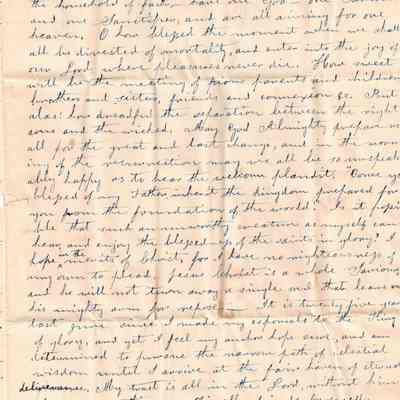 the household of faith, have one God - one Saviour
and one Sanctifier, and are all aiming for one
heaven. O how blessed the moment when we shall
all be divested of mortality, and enter into the joy of
our Lord, where pleasures never die. How sweet
will be the meeting of pious parents and children
brothers and sisters, friends and connexions. But
alas! how dreadful the separation between the right
eous and the wicked. May God Almighty prepare us
all for the great and last change, and in the morn
ing of the resurrection may we all be so unspeak
ably happy as to hear the welcome plaudit, Come ye
blessed of my Father, inherit the kingdom prepared for
you from the foundation of the world. Is it possi
ble that such an unworthy creature as myself can
hear and enjoy the blessedness of the saints in glory? I
hope in the merits of Christ, for I have no righteousness of
my own to plead. Jesus Christ is a whole Saviour
and he will not turn away a single one that leans on
his mighty arm for repose. It is twenty five years
last June since I made my espousals to the King
of glory, and yet I feel my anchor hope sure, and am
determined to pursue the narrow path of celestial
wisdom until I arrive at the fair haven of eternal
deliverance. My trust is all in the Lord, without him